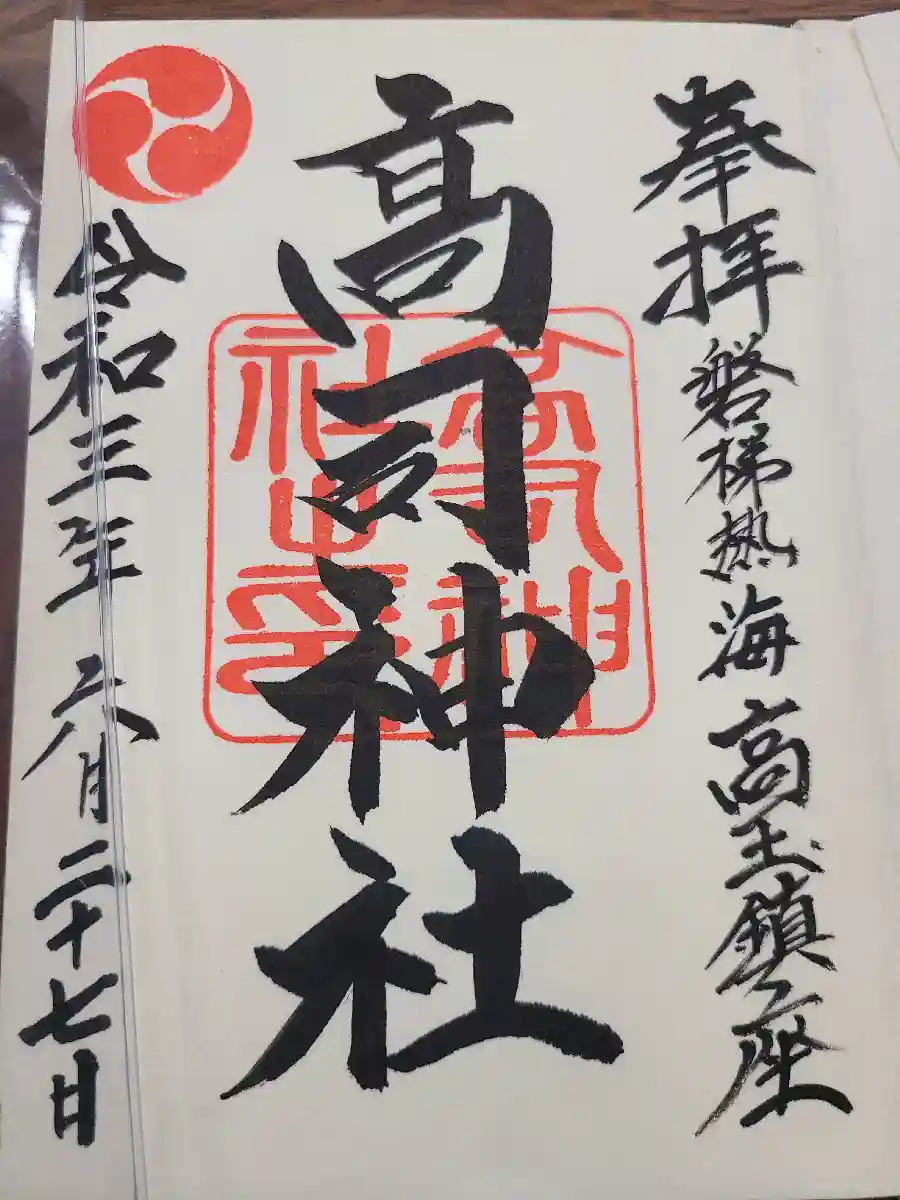 奉拝 磐梯熱海 高玉鎮座
高司神社
高司神社之印
令和三年 六月二十七日